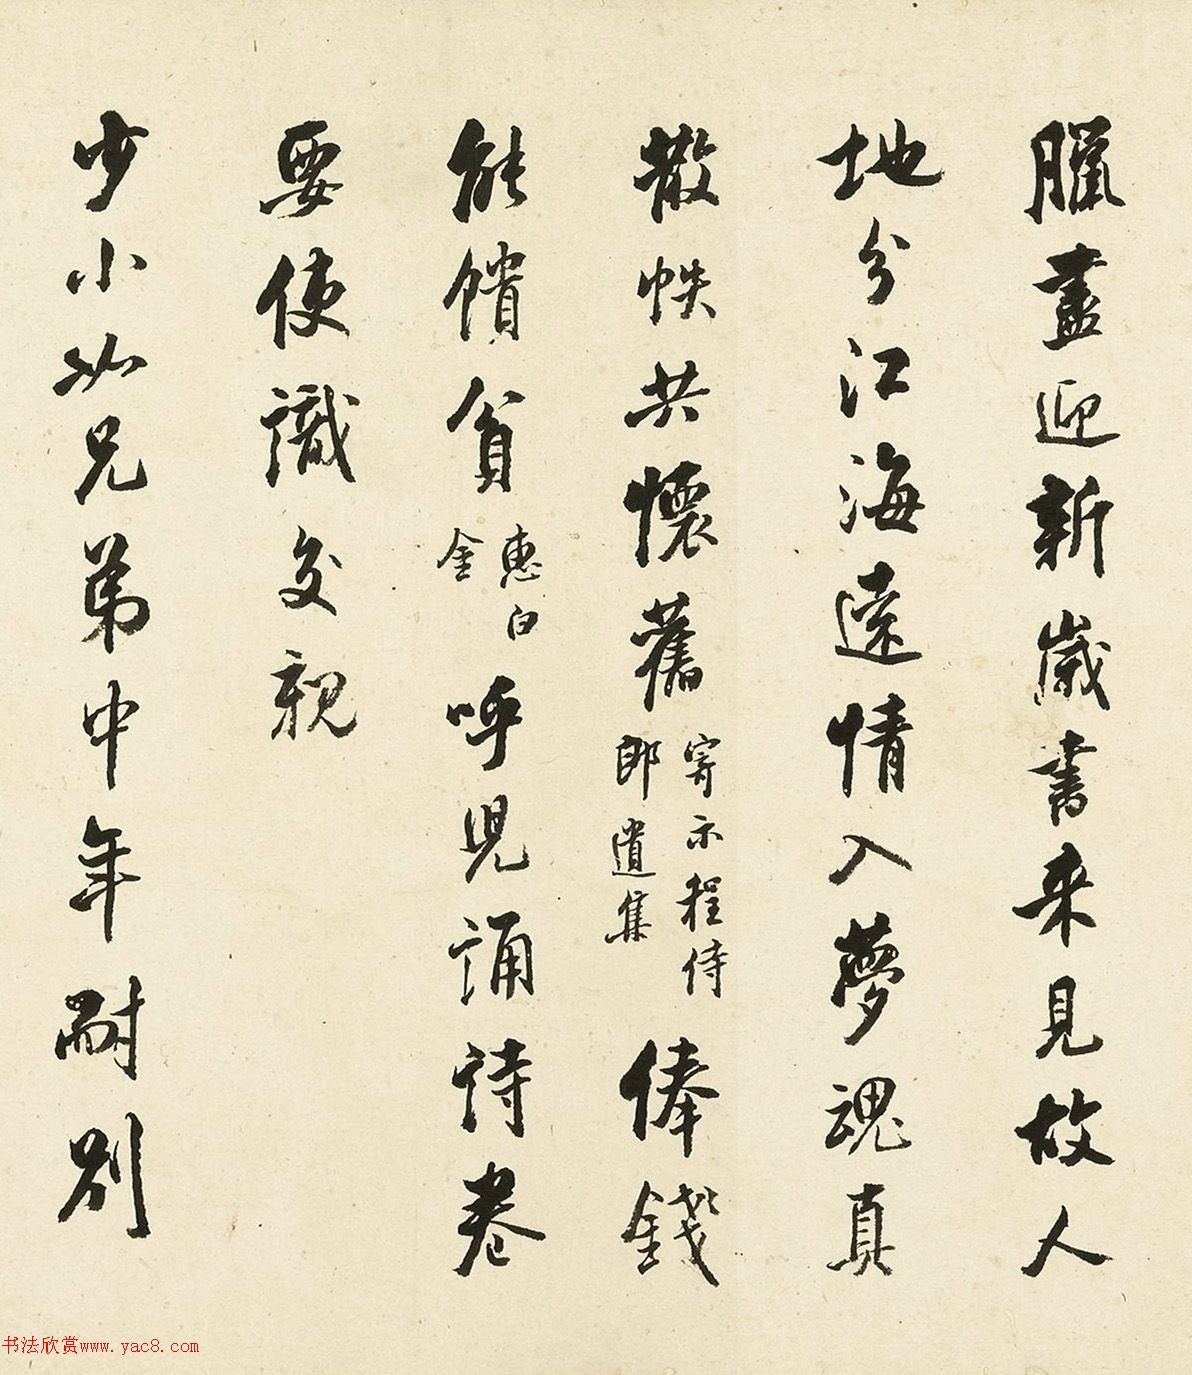 臘盡迎新歲書来見故人
地分江海遠情入夢魂真
散帙共懷舊寄示程侍郎遺集俸錢
能饋貧惠白金呼児誦詩卷
要使識交親
少小如兄弟中年耐別
书法欣赏www.yac8.com